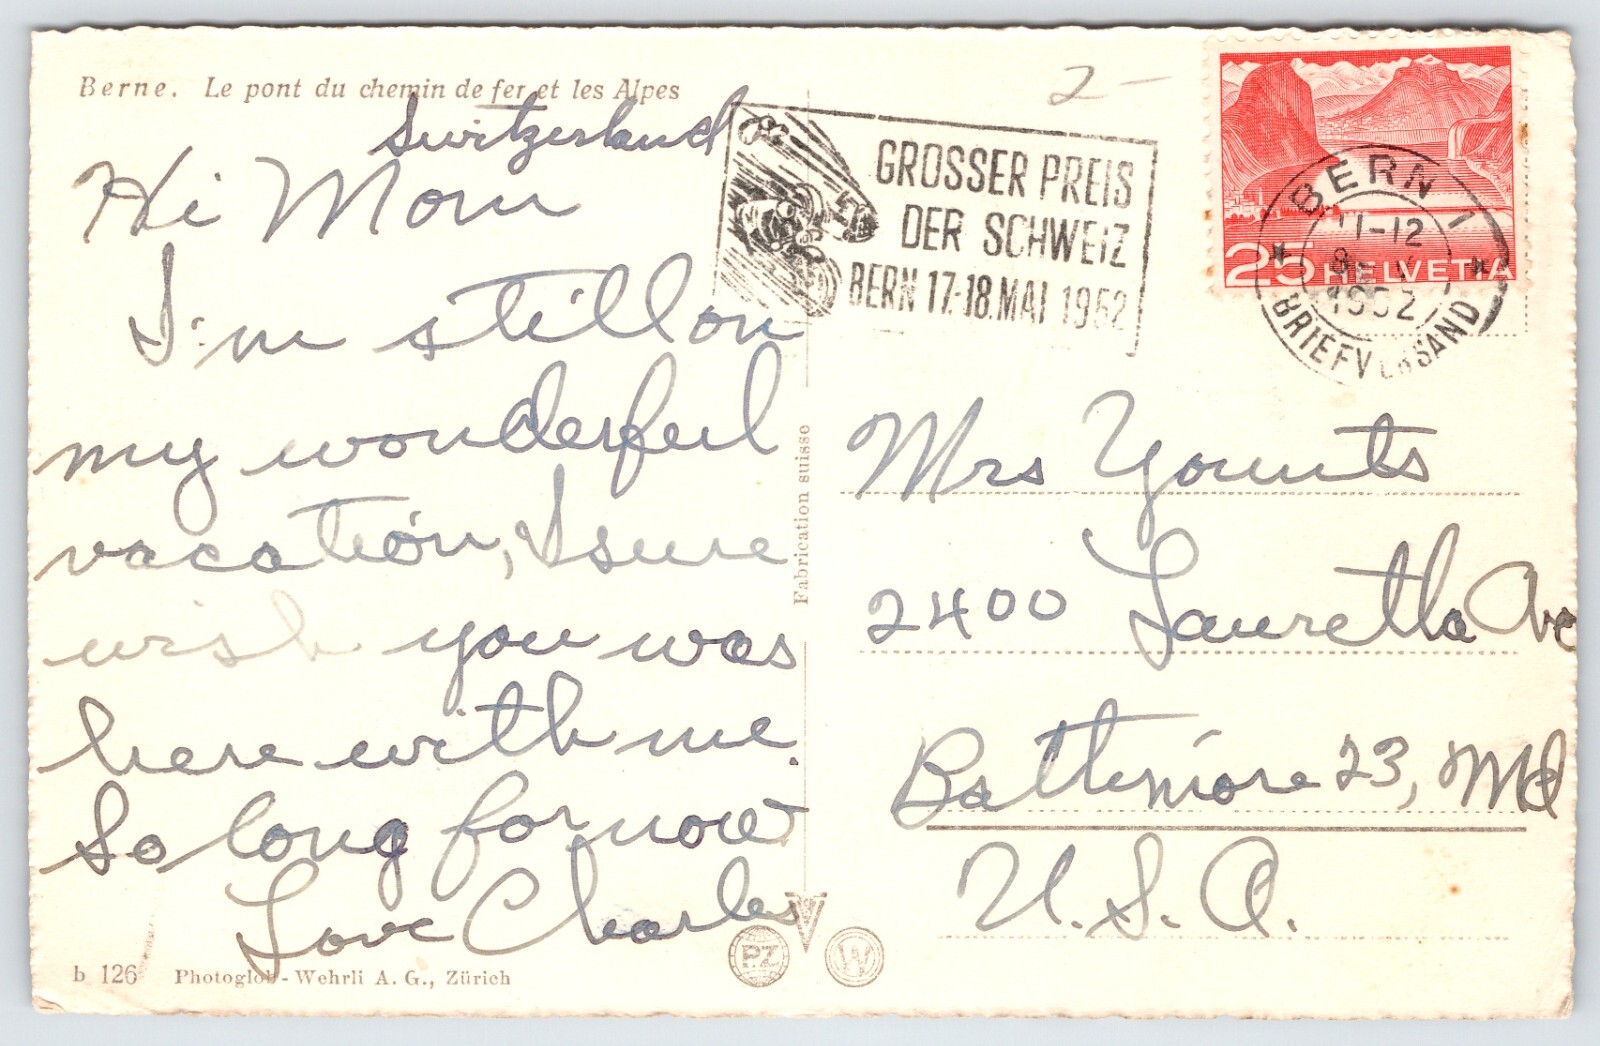 Berne. Le pont du chemin de fer et les Alpes
Switzerland
Hi Mom
I'm still on
my wonderful
vacation, I sure
wish you was
here with me.
So long for now
Love Charles
b 126 Photoglob-Wehrli A. G., Zürich
Fabrication suisse
PZ
W
2-
GROSSER PREIS
DER SCHWEIZ
BERN 17.-18. MAI 1952
25 HELVETIA
BERN 1
11-12
1952
BRIEFVERSAND
Mrs Younts
2400 Lauretta Ave
Baltimore 23, Md
U.S.A.